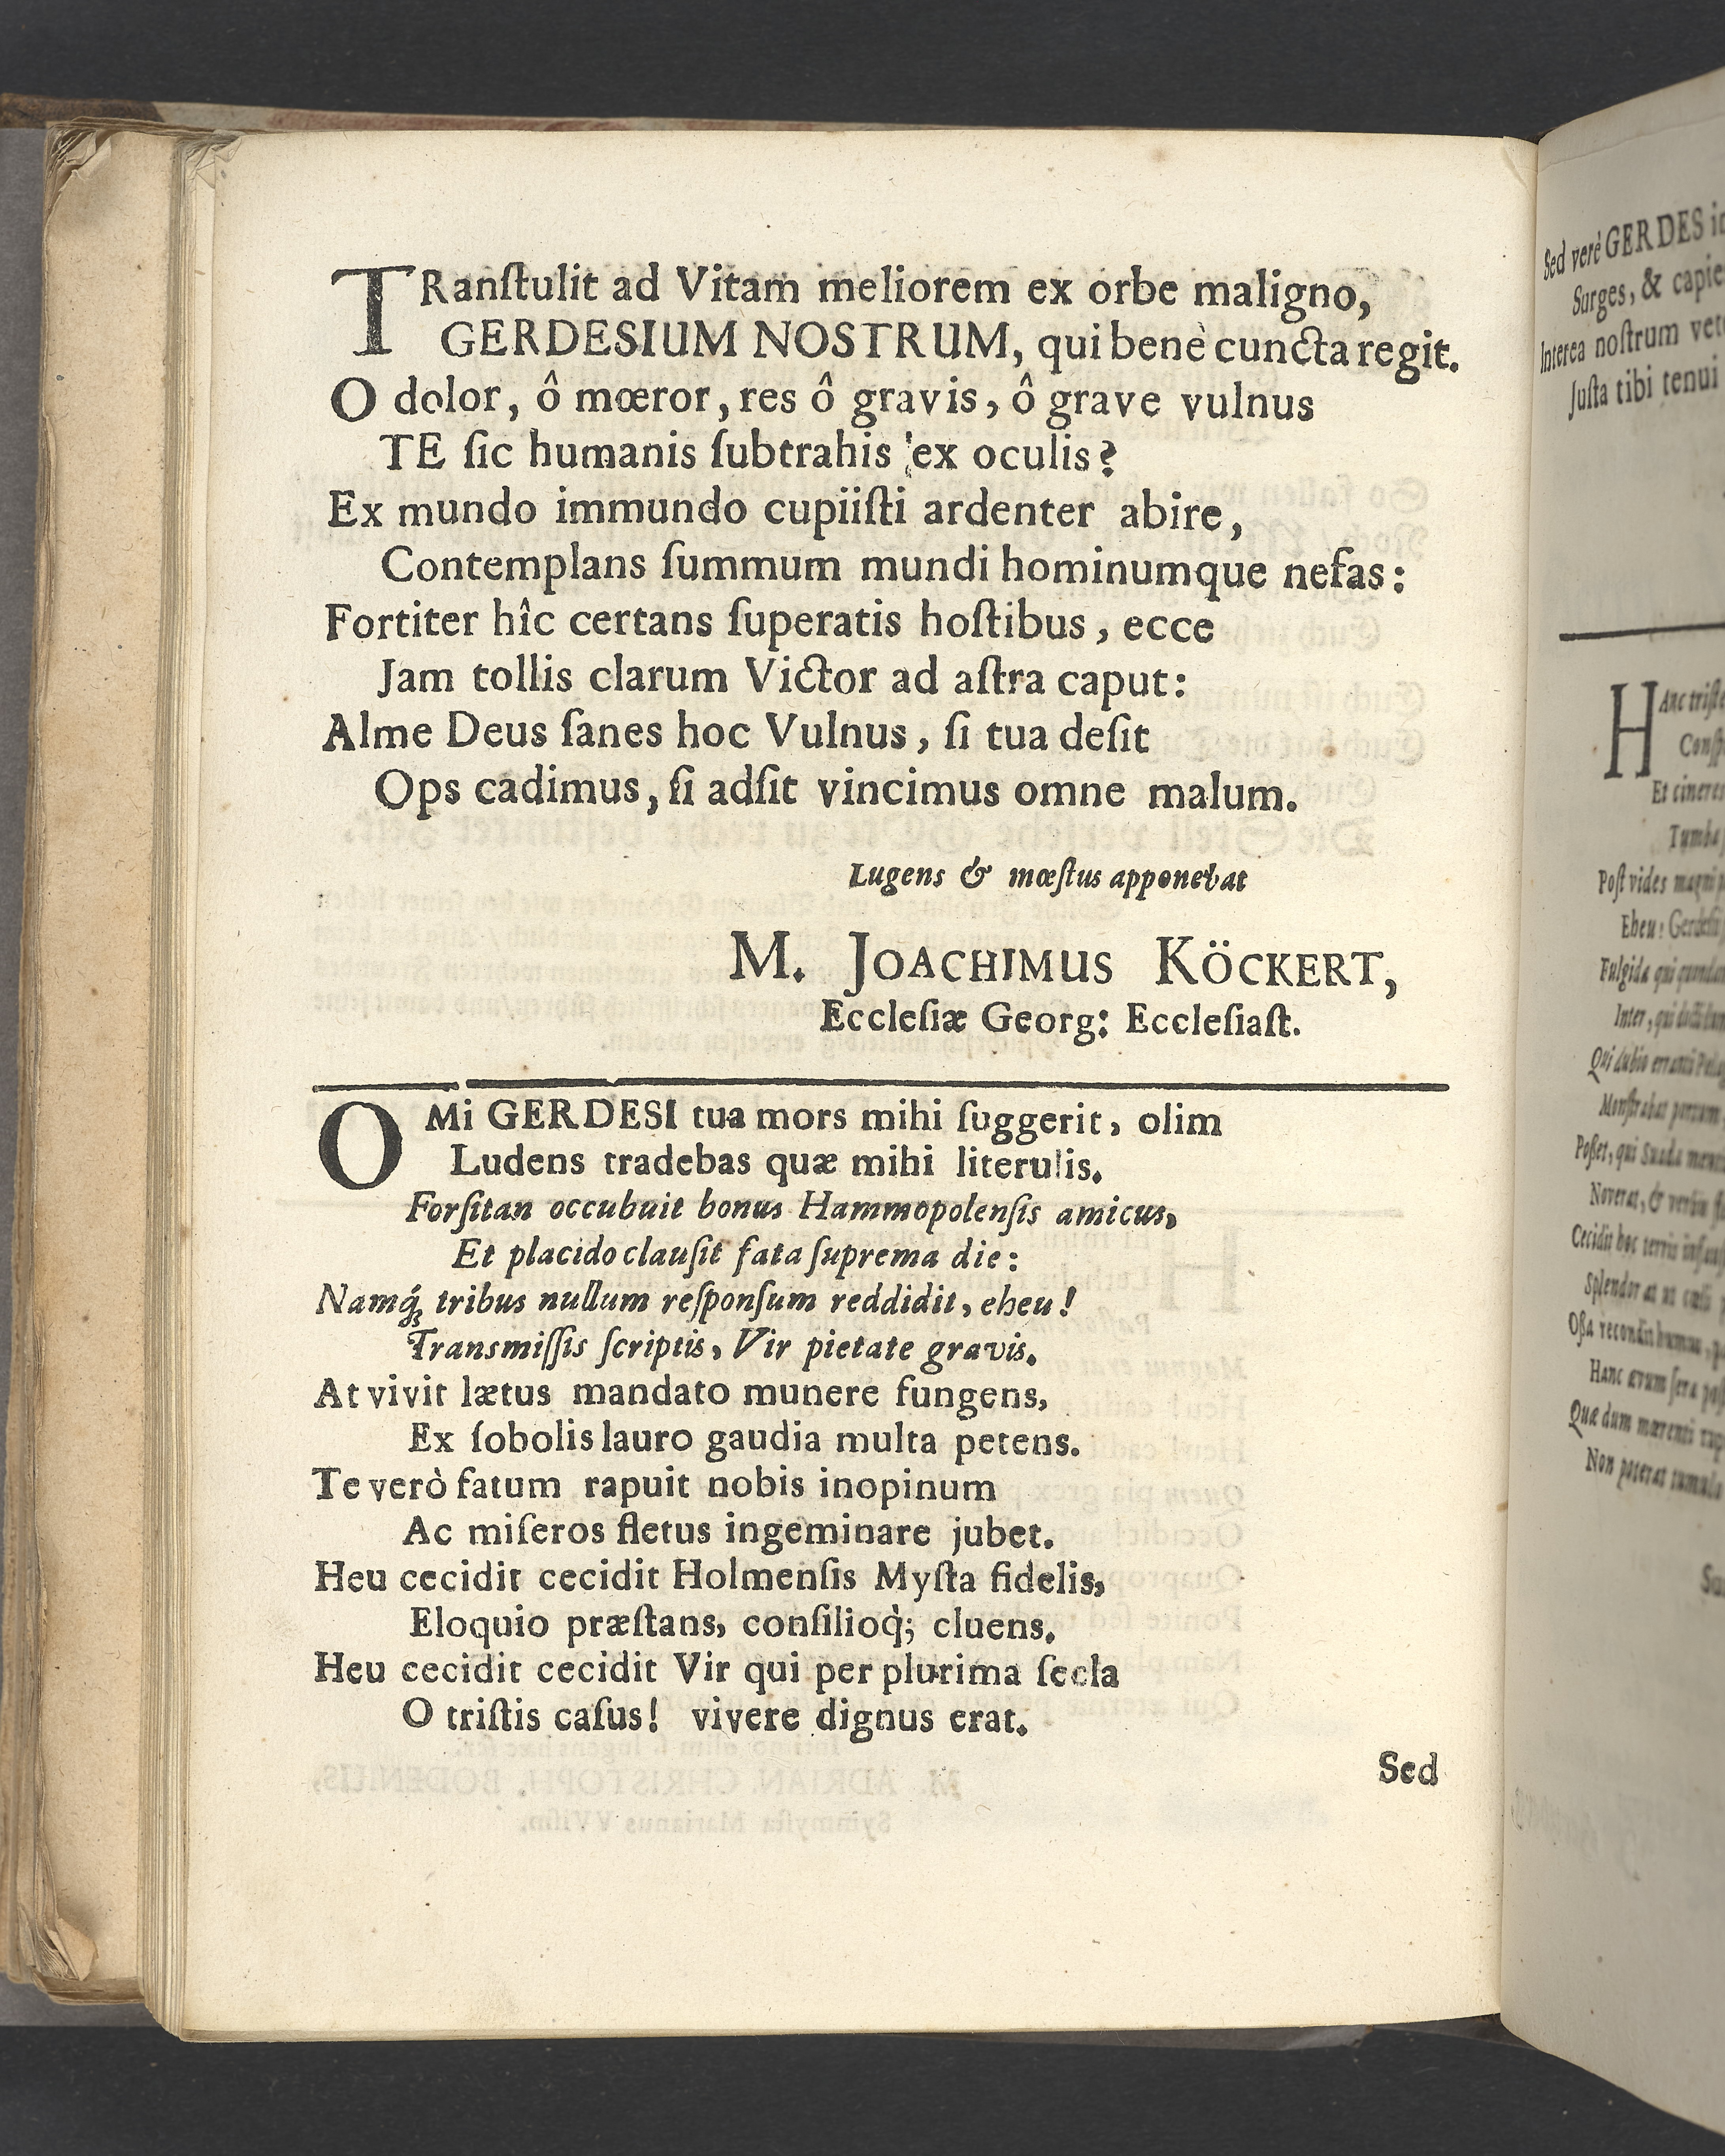 TRanſtulit ad Vitam meliorem ex orbe maligno,
GERDESIUM NOSTRUM, qui benè cuncta regit.
O dolor, ô mœror, res ô gravis, ô grave vulnus
TE ſic humanis ſubtrahis ex oculis?
Ex mundo immundo cupiiſti ardenter abire,
Contemplans ſummum mundi hominumque nefas:
Fortiter hîc certans ſuperatis hoſtibus, ecce
Jam tollis clarum Victor ad aſtra caput:
Alme Deus ſanes hoc Vulnus, ſi tua deſit
Ops cadimus, ſi adſit vincimus omne malum.
Lugens & mœſtus apponebat
M. JOACHIMUS KÖCKERT,
Eccleſiæ Georg: Eccleſiaſt.
O Mi GERDESI tua mors mihi ſuggerit, olim
Ludens tradebas quæ mihi literulis.
Forſitan occubuit bonus Hammopolenſis amicus,
Et placido clauſit fata ſuprema die:
Namq́ꝫ tribus nullum reſponſum reddidit, eheu!
Transmiſſis ſcriptis, Vir pietate gravis.
At vivit lætus mandato munere fungens,
Ex ſobolis lauro gaudia multa petens.
Te verò fatum rapuit nobis inopinum
Ac miſeros fletus ingeminare jubet.
Heu cecidit cecidit Holmenſis Myſta fidelis,
Eloquio præſtans, conſilioq̀; cluens.
Heu cecidit cecidit Vir qui per plurima ſecla
O triſtis caſus! vivere dignus erat.
Sed
Sed verè GERDES
Surges, & capie
Interea noſtrum
Juſta tibi tenui
HAnc triſte
Et cineres
Tumba
Poſt vides magni
Eheu! Gerdeſii
Fulgida qui
Inter, qui
Qui dubio erranti
Monſtrabat portum
Poßet, qui Suada
Noverat, & verbis
Cecidit hoc terris
Splendor at ut cœli
Oßa recondit humus,
Hanc ævum ſera
Quæ dum mœrenti
Non poterat tumulo